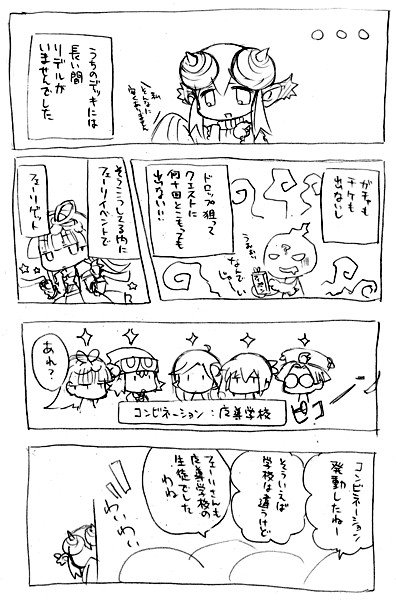 うちのデッキには
長い間
リデルが
いませんでした
私
そんなに
安くありません
ガチャも
チケも
出ないし
ドロップ狙って
クエストに
何十回とこもっても
出ない!!
うぉぉ
なんでい
じゃーい
そうこうしてる内に
フェーリイベントで
フェーリゲット
ピコーン
あれ?
コンビネーション:虎葬学校
コンビネーション
発動したねー
そういえば
学校は違うけど
フェーリさんも
学校の
生徒でした
わね
わいわい